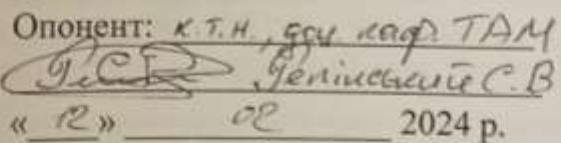 Опонент: к.т.н., доц каф. ТАМ
Репінський С.В
« 12 » 02 2024 р.